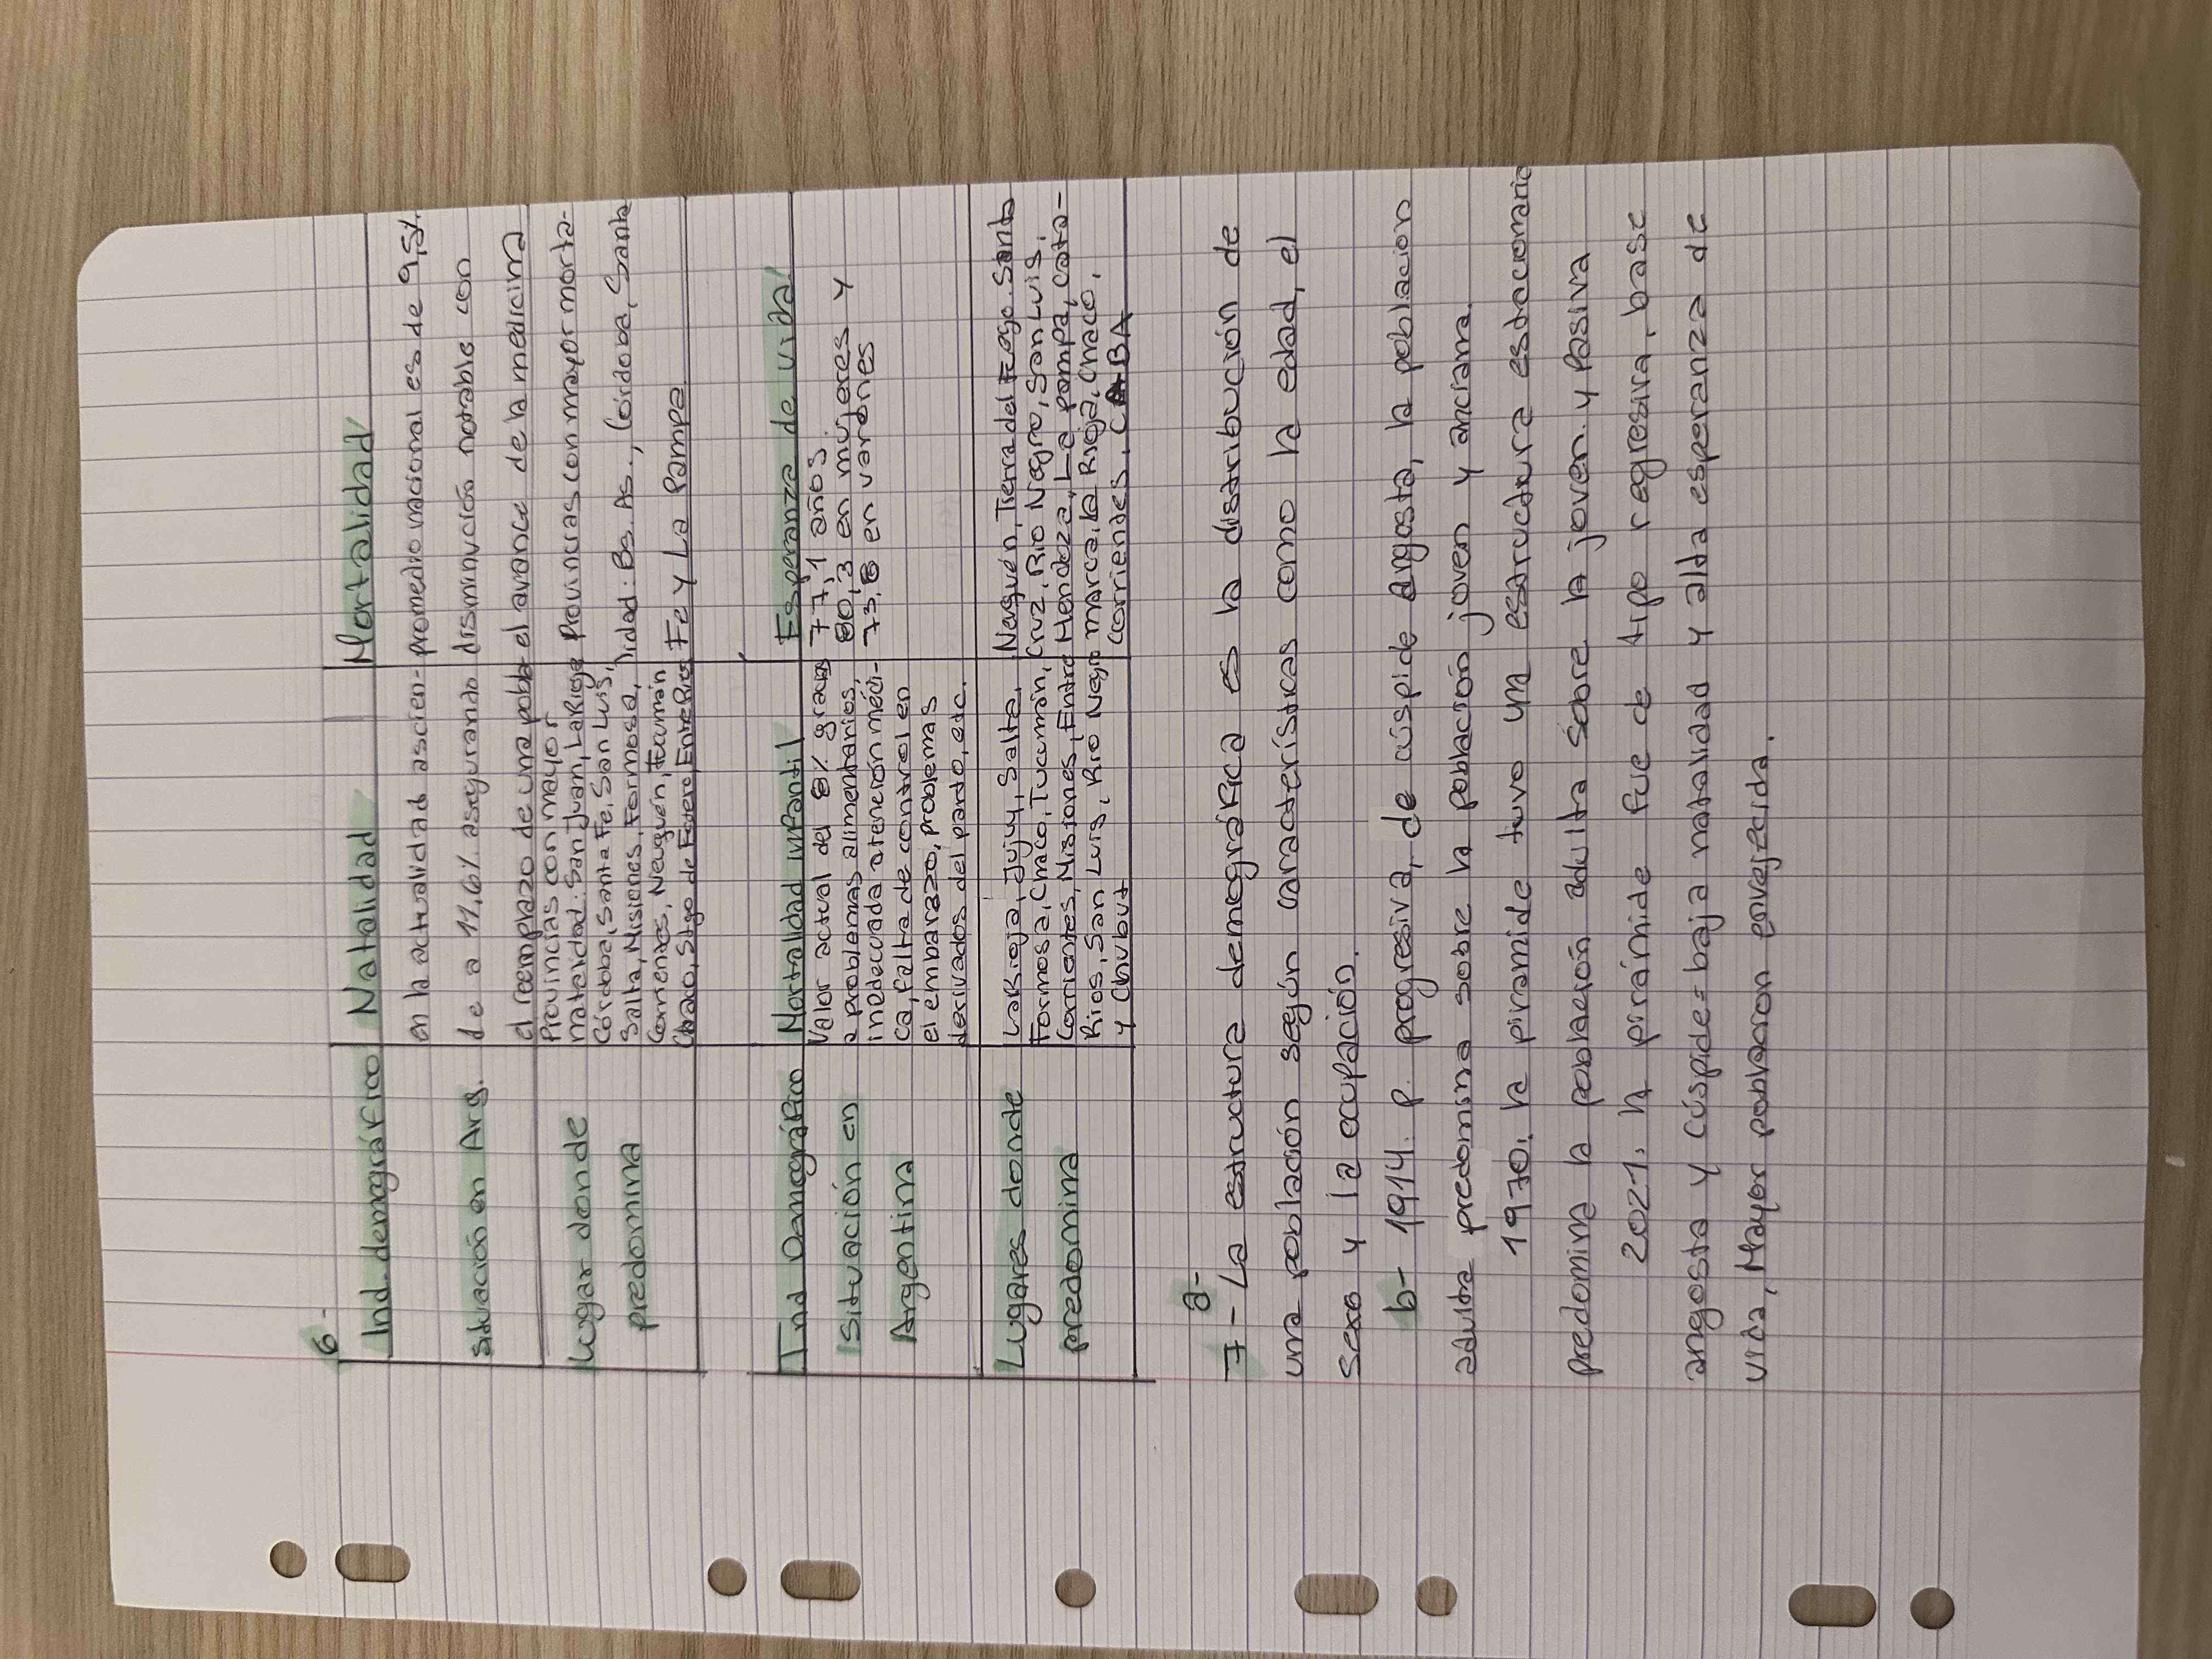 6-
Ind. demográfico | Natalidad | Mortalidad
Situación en Arg. | en la actualidad ascien- | promedio nacional es de 9,5%.
de a 11,6% asegurando | disminución notable con
el reemplazo de una pobl. | el avance de la medicina
Lugar donde | Provincias con mayor | Provincias con mayor morta-
predomina | natalidad: San Juan, La Rioja | lidad: Bs. As., Córdoba, Santa
Córdoba, Santa Fe, San Luis, | Fe y La Pampa
Salta, Misiones, Formosa,
Corrientes, Neuquén, Tucumán
Chaco, Stgo de Estero, Entre Rios
Ind Demográfico | Mortalidad infantil | Esperanza de vida
Situación en | Valor actual del 8% gracias | 77,1 años.
Argentina | a problemas alimentarios, | 80,3 en mujeres y
inadecuada atención médi- | 73,8 en varones
ca, falta de control en
el embarazo, problemas
derivados del parto, etc.
Lugares donde | La Rioja, Jujuy, Salta, | Neuquén, Tierra del Fuego, Santa
predomina | Formosa, Chaco, Tucumán, | Cruz, Rio Negro, San Luis,
Corrientes, Misiones, Entre | Mendoza, La pampa, Cata-
Rios, San Luis, Rio Negro | marca, la Rioja, Chaco,
y Chubut | Corrientes, CABA
7- a- La estructura demográfica es la distribución de
una población según características como la edad, el
sexo y la ocupación.
b- 1914. P. progresiva, de cúspide angosta, la poblacion
adulta predomina sobre la población joven y anciana.
1970. la piramide tuvo una estructura estacionaria
predomina la población adulta sobre la joven y Pasiva
2021. la pirámide fue de tipo regresiva, base
angosta y cúspide = baja natalidad y alta esperanza de
vida, Mayor poblacion envejecida.